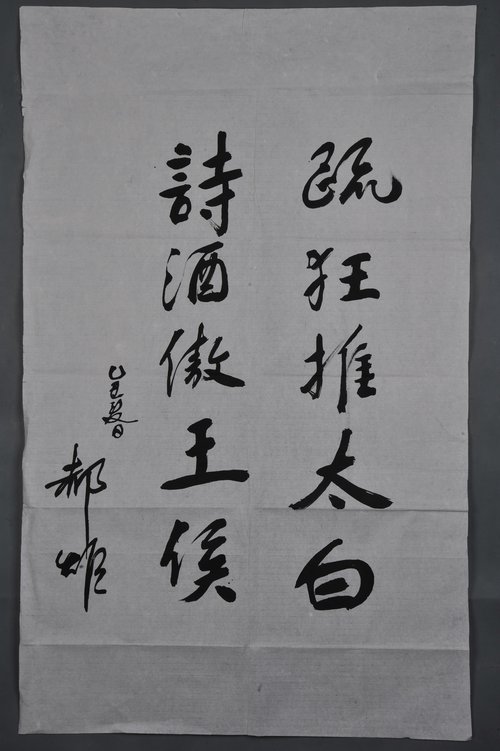 疏狂推太白
詩酒傲王侯
丑夏日
郝炬